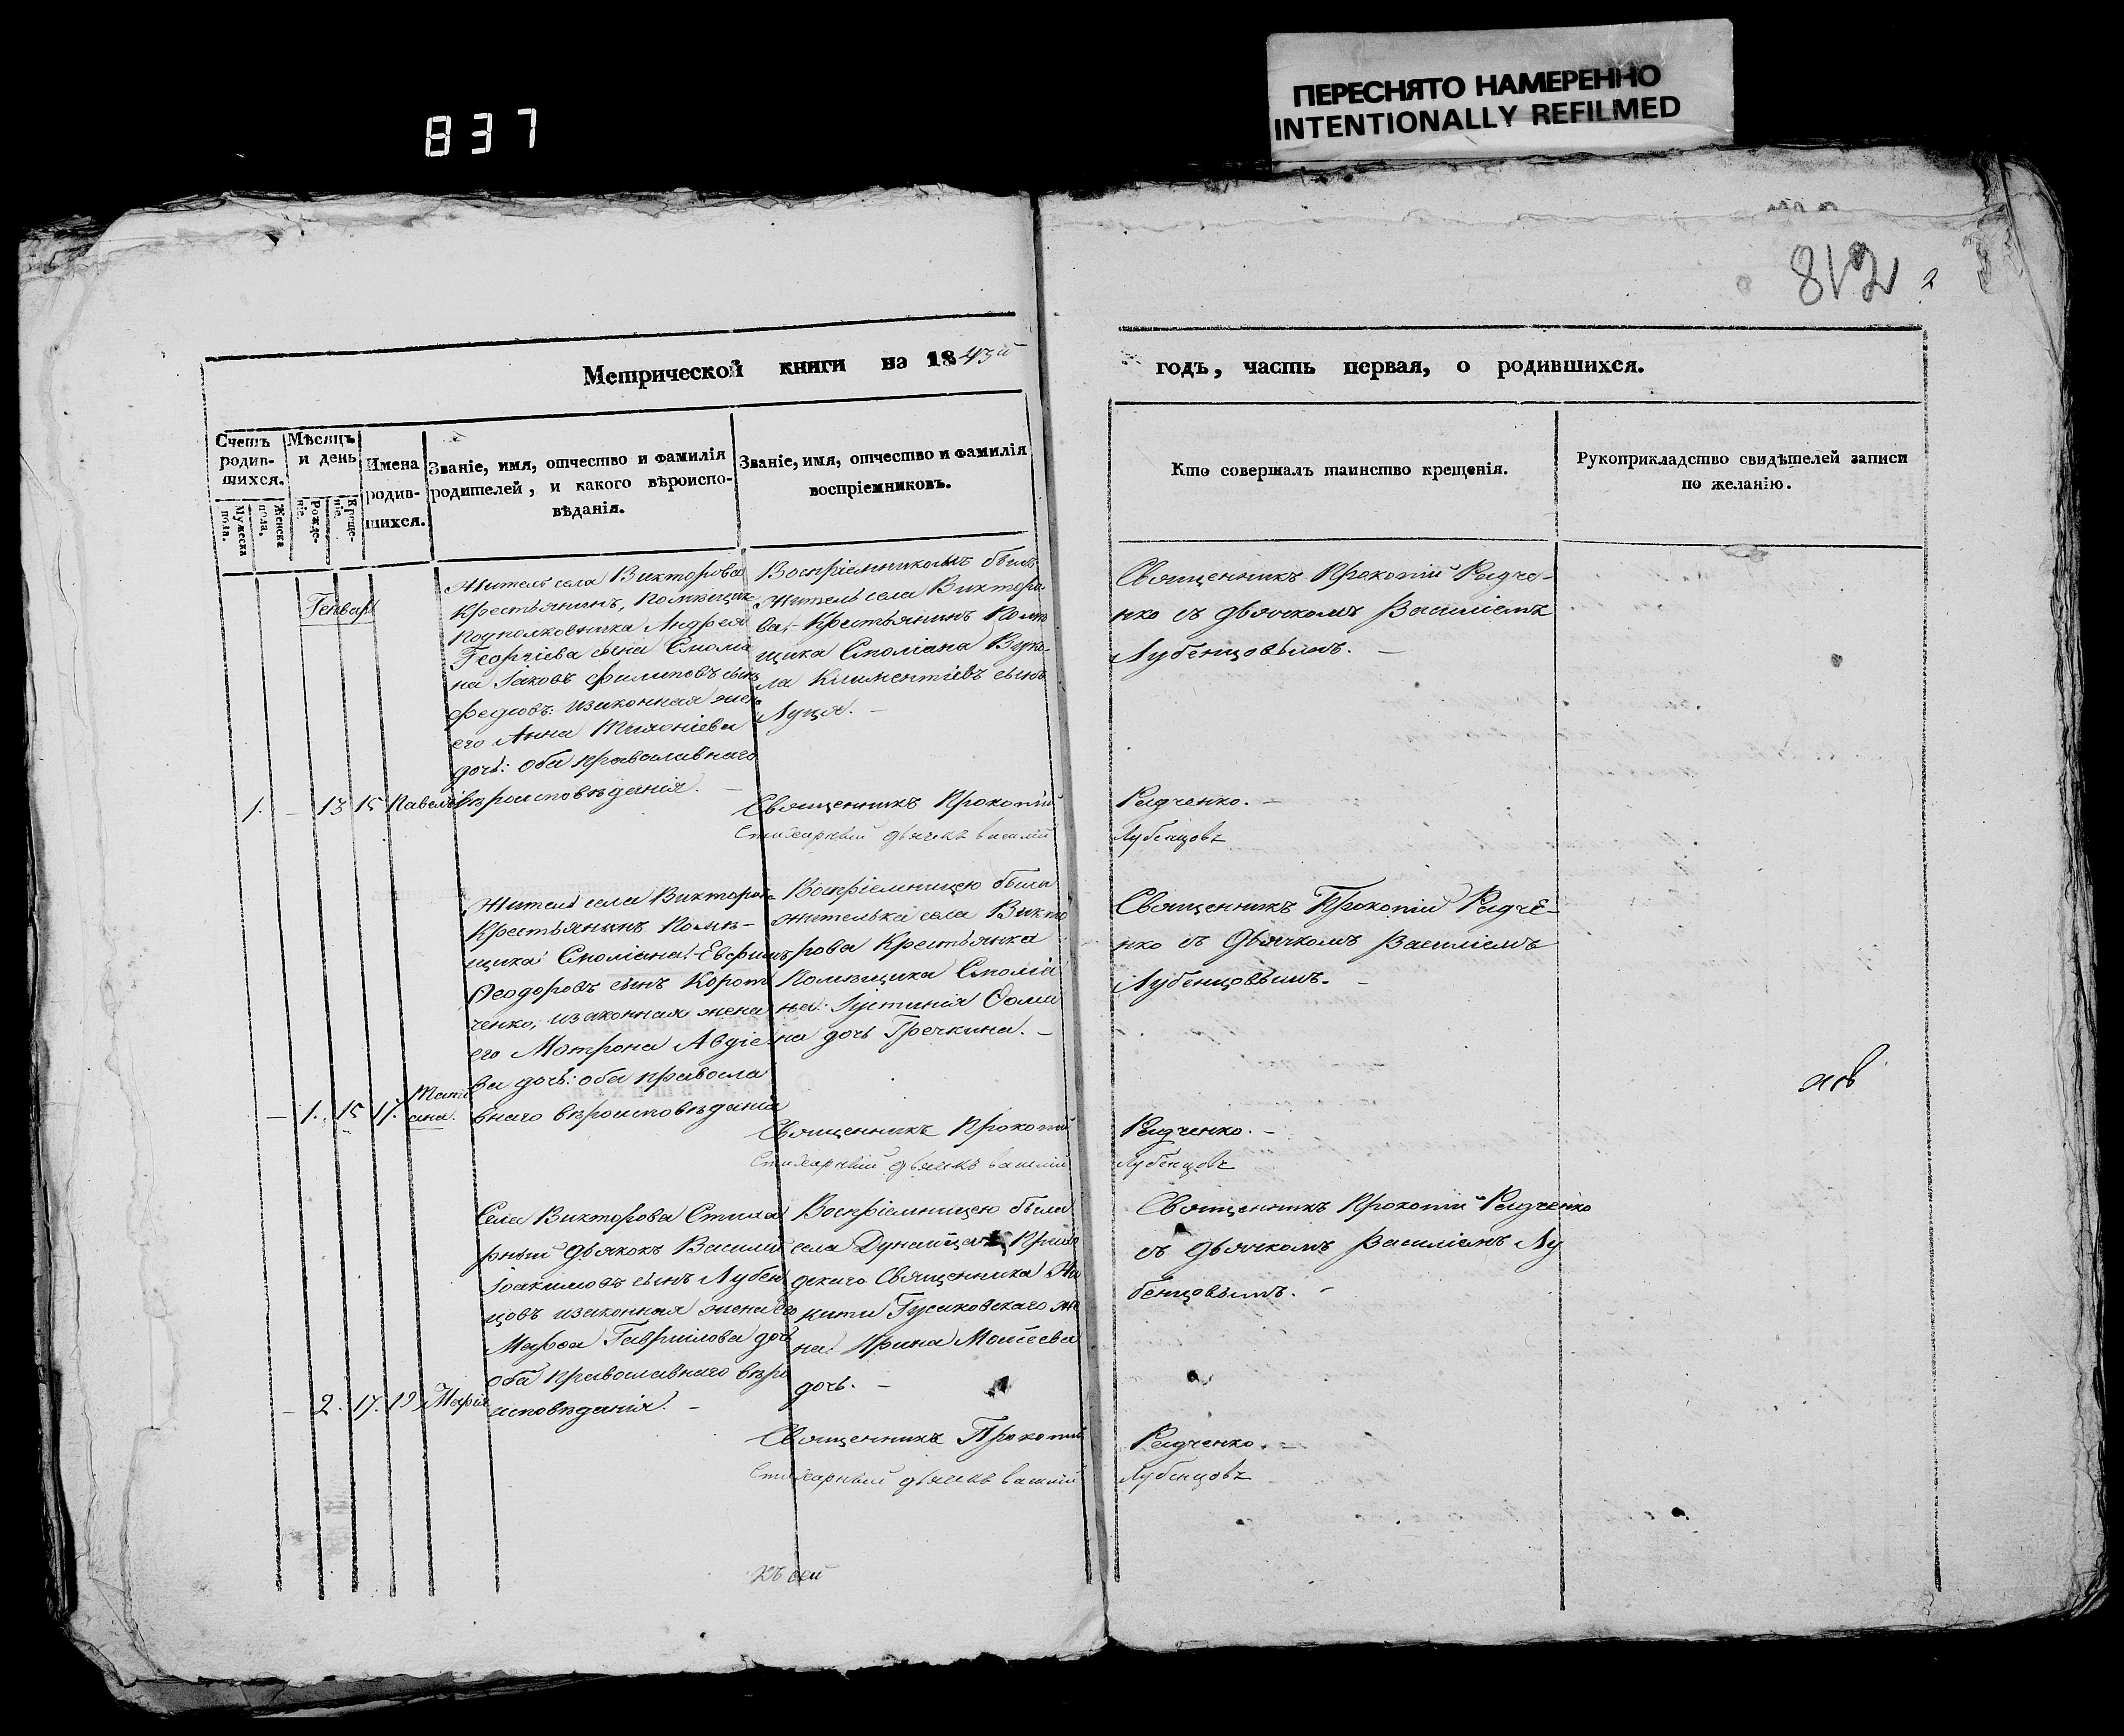 837
ПЕРЕСНЯТО НАМЕРЕННО
INTENTIONALLY REFILMED
812
2
Метрической книги на 1843й
годъ, часть первая, о родившихся.
Счетъ родив-шихся.
Мужеска пола.
Женска пола.
Мѣсяцъ и день
Рожде-нія.
Креще-нія.
Имена родив-шихся.
Званіе, имя, отчество и фамилія
родителей, и какого вѣроиспо-
вѣданія.
Званіе, имя, отчество и фамилія
воспріемниковъ.
Кто совершалъ таинство крещенія.
Рукоприкладство свидѣтелей записи
по желанію.
Генварь
1. - 13 15 Павелъ
Житель села Викторова
Крестьянинъ, Помѣщика
Подполковника Андрея
Георгіева сына Смоля
на Іаковъ Филиповъ сынъ
изаконная жена
его Анна
дочь: оба православнаго
вѣроисповѣданія. -
Воспріемникомъ былъ
Житель села Викторо-
ва Крестьянинъ Помѣ
щика Смоліана Вуко-
ла Климентіевъ сынъ
Луця. -
Священникъ Прокопій
Стихарный дьячекъ василій
Священникъ Прокопій Радче-
нко съ дьячкомъ Василіемъ
Лубенцовымъ. -
Радченко. -
Лубенцовъ
- 1. 15 17. Тати
ана.
Житель села Викторов
Крестьянинъ Помѣ-
щика Смоліана Евфимъ
Ѳеодоровъ сынъ Корот
ченко, изаконная жена
его Мотрона Авдіе
ва дочь: оба правосла
внаго вѣроисповѣданія
Воспріемницею была
жителька села Викто
рова Крестьянка
Помѣщика Смоліа
на: Іустинія Ѳоми
на дочь Гречкина. -
Священникъ Прокопій
Стихарный дьячекъ василій
Священникъ Прокопій Радче-
нко съ Дьячкомъ Василіемъ
Лубенцовымъ. -
Радченко. -
Лубенцовъ
- 2. 17. 19 Марія
Села Викторова Стиха
рный дьячокъ Василій
Іоакимовъ сынъ Лубен
цовъ изаконная жена его
Марѳа Гавриилова дочь
оба православнаго вѣро
исповѣданія. -
Воспріемницею была
села Дунайца Прихо
дскаго Священника Ни
киты Гусаковскаго же
на Ирина Моисеева
дочь. -
Священникъ Прокопій
Стихарный дьячекъ василій
Священникъ Прокопій Радченко
съ Дьячкомъ Василіемъ Лу
бенцовымъ. -
Радченко. -
Лубенцовъ
къ сей